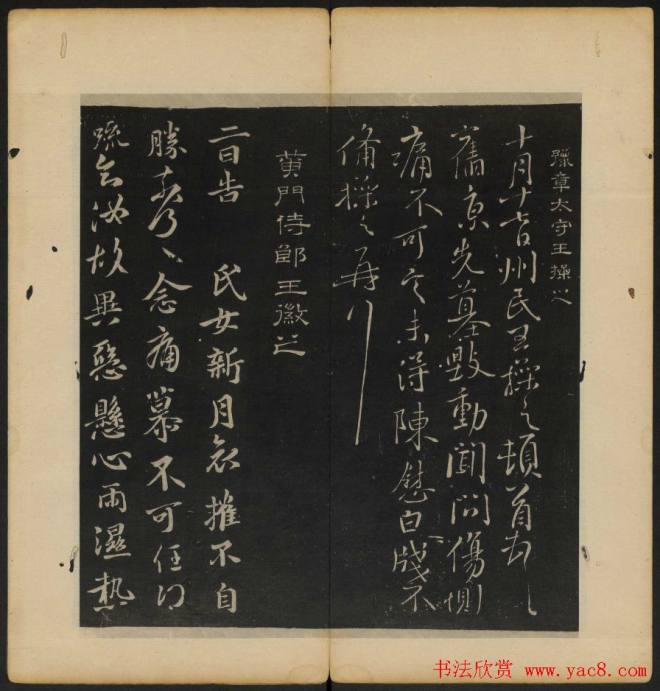 豫章太守王操之
十月十日州民王操之頓首
舊京先墓毀動聞問傷惻
痛不可言未得陳慰白牋不
備操之再行
黃門侍郎王徽之
二日告 氏女新月哀摧不自
勝奈何〻念痛慕不可任得
疏知汝故異惡懸心雨濕熱
书法欣赏 www.yac8.com